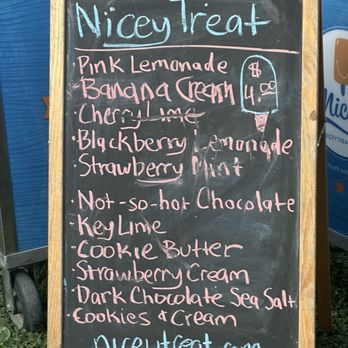 Nicey Treat
· Pink Lemonade
· Banana Cream
$
4.00
· Cherry Lime
· Blackberry Lemonade
· Strawberry Mint
· Not-so-hot Chocolate
· Key Lime
· Cookie Butter
· Strawberry Cream
· Dark Chocolate Sea Salt
· Cookies & Cream
niceytreat.com